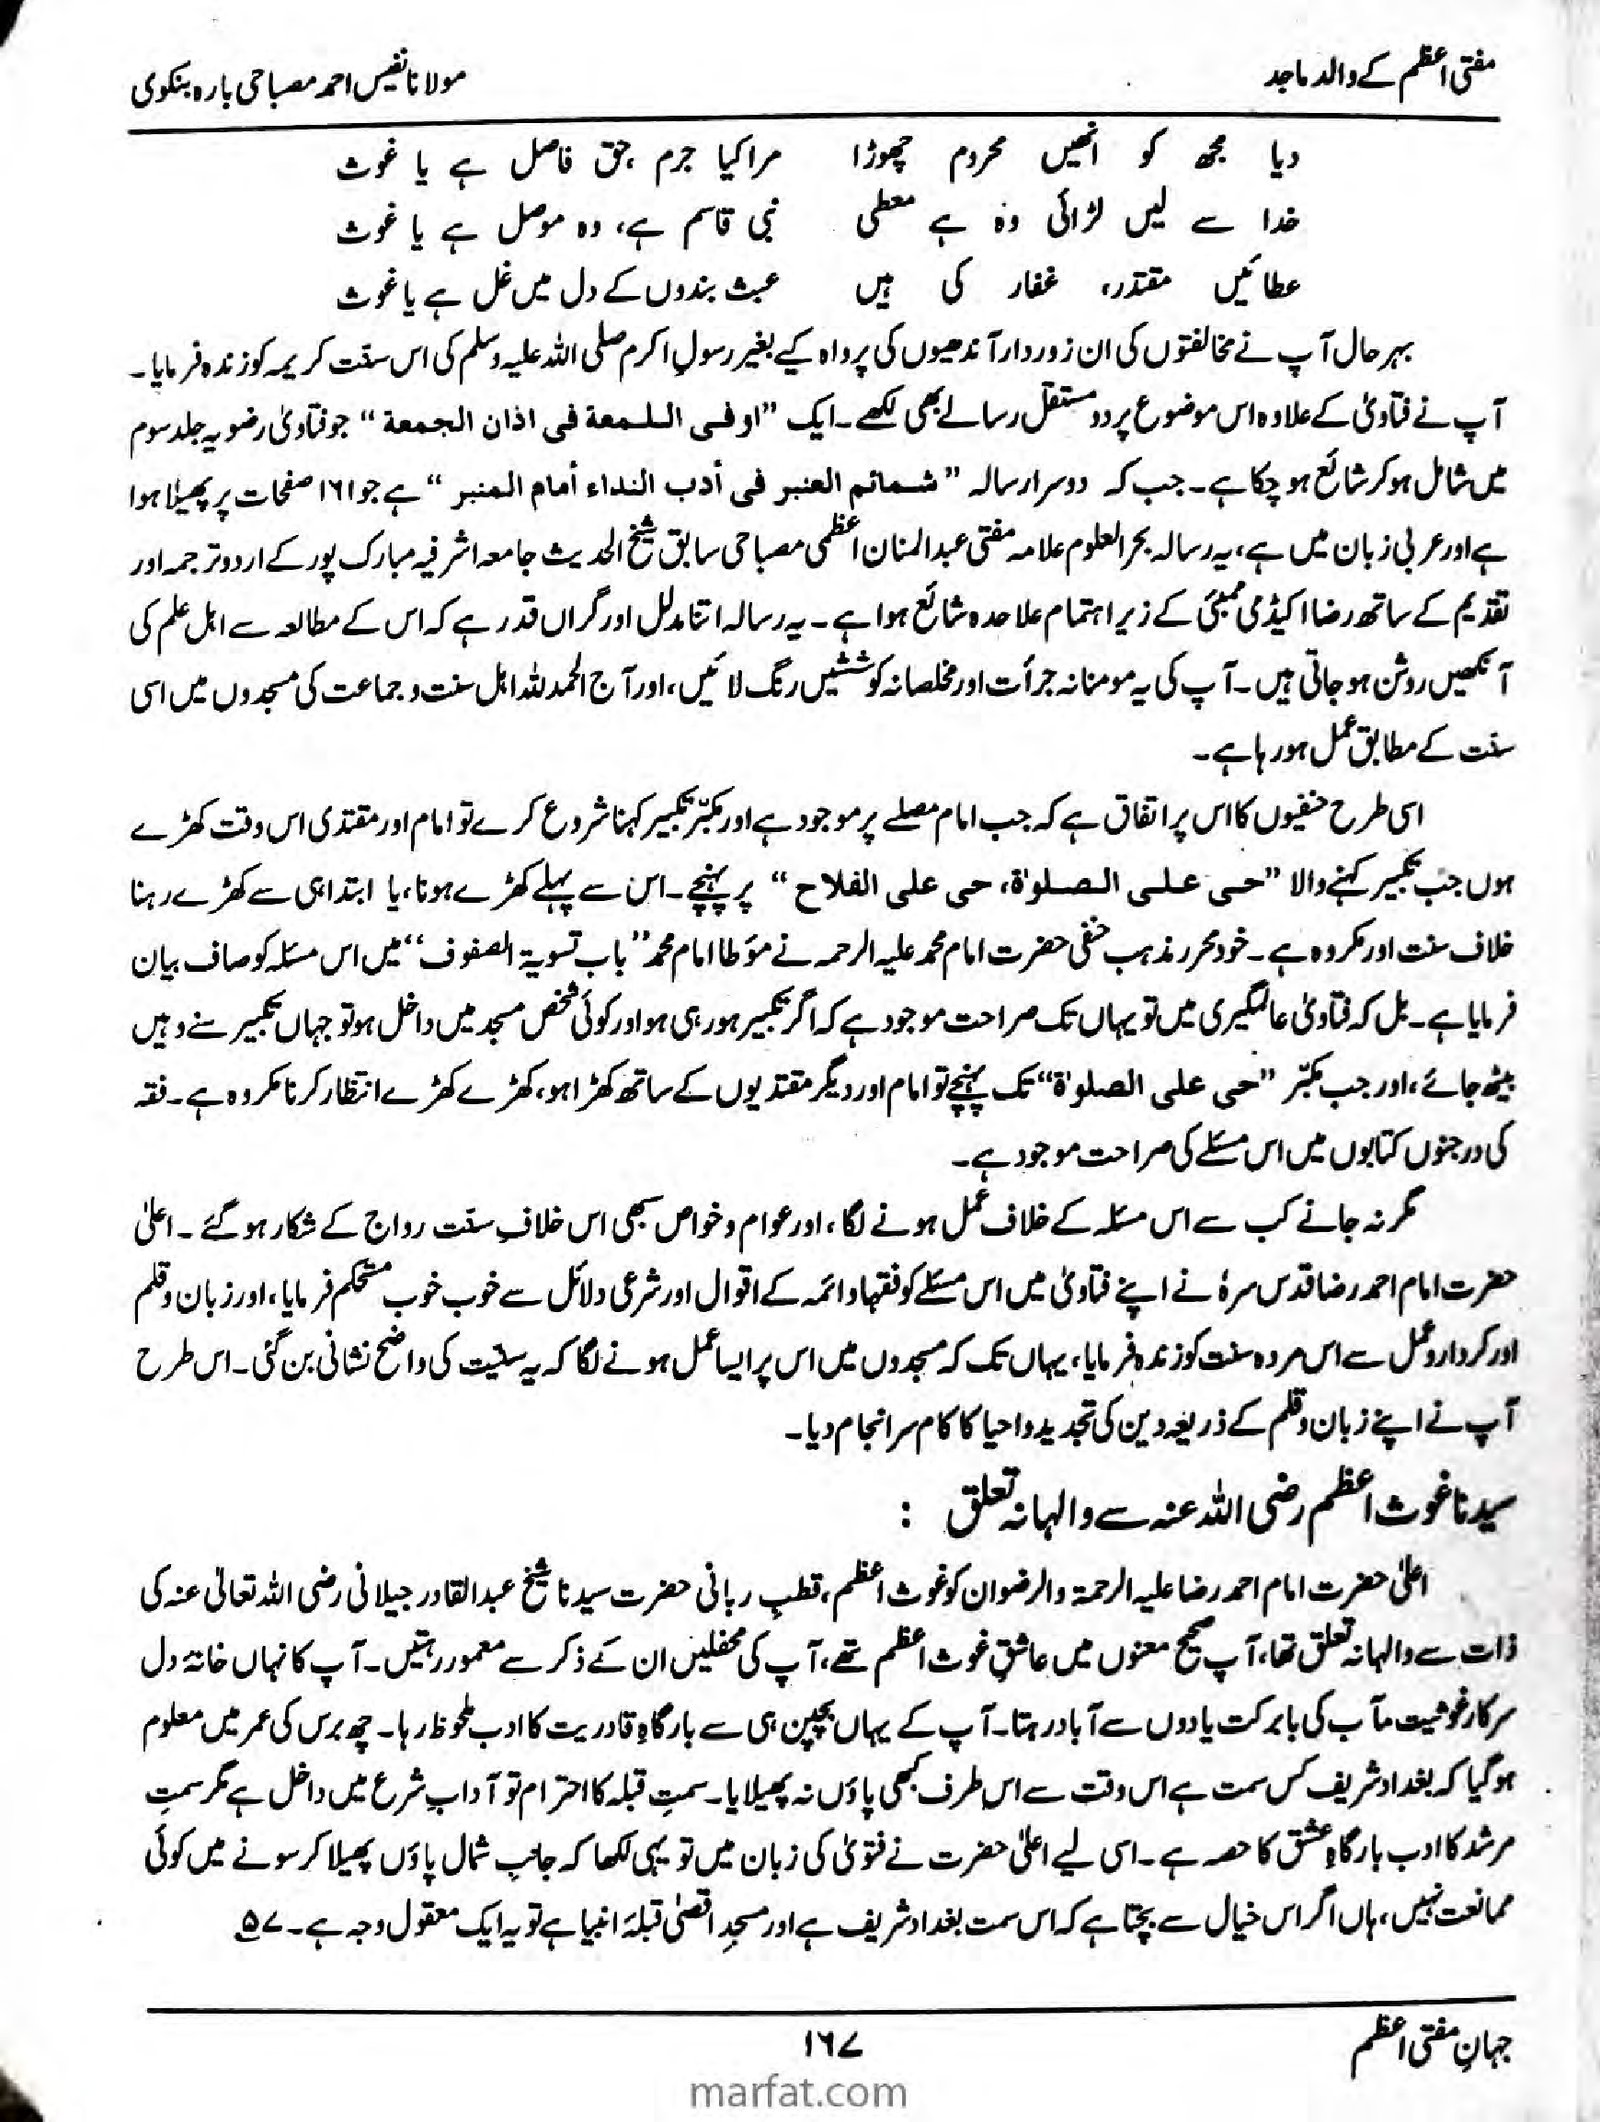 مفتی اعظم کے والد ماجد
مولانا نفیس احمد مصباحی بارہ بنکوی
دیا مجھ کو انھیں محروم چھوڑا مرا کیا جرم، حق فاصل ہے یا غوث
خدا سے لیں لڑائی وہ ہے معطی نبی قاسم ہے، وہ موصل ہے یا غوث
عطائیں مقتدر، غفار کی ہیں عبث بندوں کے دل میں غل ہے یا غوث
بہر حال آپ نے مخالفتوں کی ان زوردار آندھیوں کی پرواہ کیے بغیر رسولِ اکرم صلی اللہ علیہ وسلم کی اس سنّت کریمہ کو زندہ فرمایا۔
آپ نے فتاویٰ کے علاوہ اس موضوع پر دو مستقل رسالے بھی لکھے۔ ایک ”اوفی اللمعة فی اذان الجمعة“ جو فتاویٰ رضویہ جلد سوم
میں شامل ہو کر شائع ہو چکا ہے۔ جب کہ دوسرا رسالہ ”شمائم العنبر فی أدب النداء أمام المنبر“ ہے جو ۱۶۱ صفحات پر پھیلا ہوا
ہے اور عربی زبان میں ہے، یہ رسالہ بحر العلوم علامہ مفتی عبد المنان اعظمی مصباحی سابق شیخ الحدیث جامعہ اشرفیہ مبارک پور کے اردو ترجمہ اور
تقدیم کے ساتھ رضا اکیڈمی ممبئی کے زیر اہتمام علاحدہ شائع ہوا ہے۔ یہ رسالہ اتنا مدلل اور گراں قدر ہے کہ اس کے مطالعہ سے اہل علم کی
آنکھیں روشن ہو جاتی ہیں۔ آپ کی یہ مومنانہ جرأت اور مخلصانہ کوششیں رنگ لائیں، اور آج الحمد للہ اہل سنت و جماعت کی مسجدوں میں اسی
سنّت کے مطابق عمل ہو رہا ہے۔
اسی طرح حنفیوں کا اس پر اتفاق ہے کہ جب امام مصلے پر موجود ہے اور مکبّر تکبیر کہنا شروع کرے تو امام اور مقتدی اس وقت کھڑے
ہوں جب تکبیر کہنے والا ”حی علی الصلوٰۃ، حی علی الفلاح“ پر پہنچے۔ اس سے پہلے کھڑے ہونا، یا ابتدا ہی سے کھڑے رہنا
خلاف سنت اور مکروہ ہے۔ خود محرر مذہب حنفی حضرت امام محمد علیہ الرحمہ نے مؤطا امام محمد ”باب تسویۃ الصفوف“ میں اس مسئلہ کو صاف بیان
فرمایا ہے۔ بل کہ فتاویٰ عالمگیری میں تو یہاں تک صراحت موجود ہے کہ اگر تکبیر ہو رہی ہو اور کوئی شخص مسجد میں داخل ہو تو جہاں تکبیر سنے وہیں
بیٹھ جائے، اور جب مکبّر ”حی علی الصلوٰۃ“ تک پہنچے تو امام اور دیگر مقتدیوں کے ساتھ کھڑا ہو، کھڑے کھڑے انتظار کرنا مکروہ ہے۔ فقہ
کی درجنوں کتابوں میں اس مسئلے کی صراحت موجود ہے۔
مگر نہ جانے کب سے اس مسئلہ کے خلاف عمل ہونے لگا، اور عوام و خواص سبھی اس خلافِ سنّت رواج کے شکار ہو گئے۔ اعلیٰ
حضرت امام احمد رضا قدس سرہٗ نے اپنے فتاویٰ میں اس مسئلے کو فقہا و ائمہ کے اقوال اور شرعی دلائل سے خوب خوب مستحکم فرمایا، اور زبان و قلم
اور کردار و عمل سے اس مردہ سنت کو زندہ فرمایا، یہاں تک کہ مسجدوں میں اس پر ایسا عمل ہونے لگا کہ یہ سنّیت کی واضح نشانی بن گئی۔ اس طرح
آپ نے اپنے زبان و قلم کے ذریعہ دین کی تجدید و احیا کا کام سرانجام دیا۔
سیدنا غوث اعظم رضی اللہ عنہ سے والہانہ تعلق :
اعلیٰ حضرت امام احمد رضا علیہ الرحمۃ والرضوان کو غوث اعظم، قطبِ ربانی حضرت سیدنا شیخ عبد القادر جیلانی رضی اللہ تعالیٰ عنہ کی
ذات سے والہانہ تعلق تھا، آپ صحیح معنوں میں عاشقِ غوث اعظم تھے، آپ کی محفلیں ان کے ذکر سے معمور رہتیں۔ آپ کا نہاں خانۂ دل
سرکار غوثیت مآب کی بابرکت یادوں سے آباد رہتا۔ آپ کے یہاں بچپن ہی سے بارگاہِ قادریت کا ادب ملحوظ رہا۔ چھ برس کی عمر میں معلوم
ہو گیا کہ بغداد شریف کس سمت ہے اس وقت سے اس طرف کبھی پاؤں نہ پھیلایا۔ سمتِ قبلہ کا احترام تو آدابِ شرع میں داخل ہے مگر سمتِ
مرشد کا ادب بارگاہِ عشق کا حصہ ہے۔ اسی لیے اعلیٰ حضرت نے فتویٰ کی زبان میں تو یہی لکھا کہ جانبِ شمال پاؤں پھیلا کر سونے میں کوئی
ممانعت نہیں، ہاں اگر اس خیال سے بچتا ہے کہ اس سمت بغداد شریف ہے اور مسجدِ اقصیٰ قبلۂ انبیا ہے تو یہ ایک معقول وجہ ہے۔ ۵۷
جہانِ مفتی اعظم
۱۶۷
marfat.com